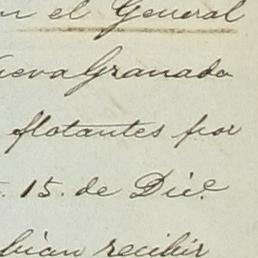 n el General
ueva Granada
flotantes por
. 15. de Dic.e
bian recibir